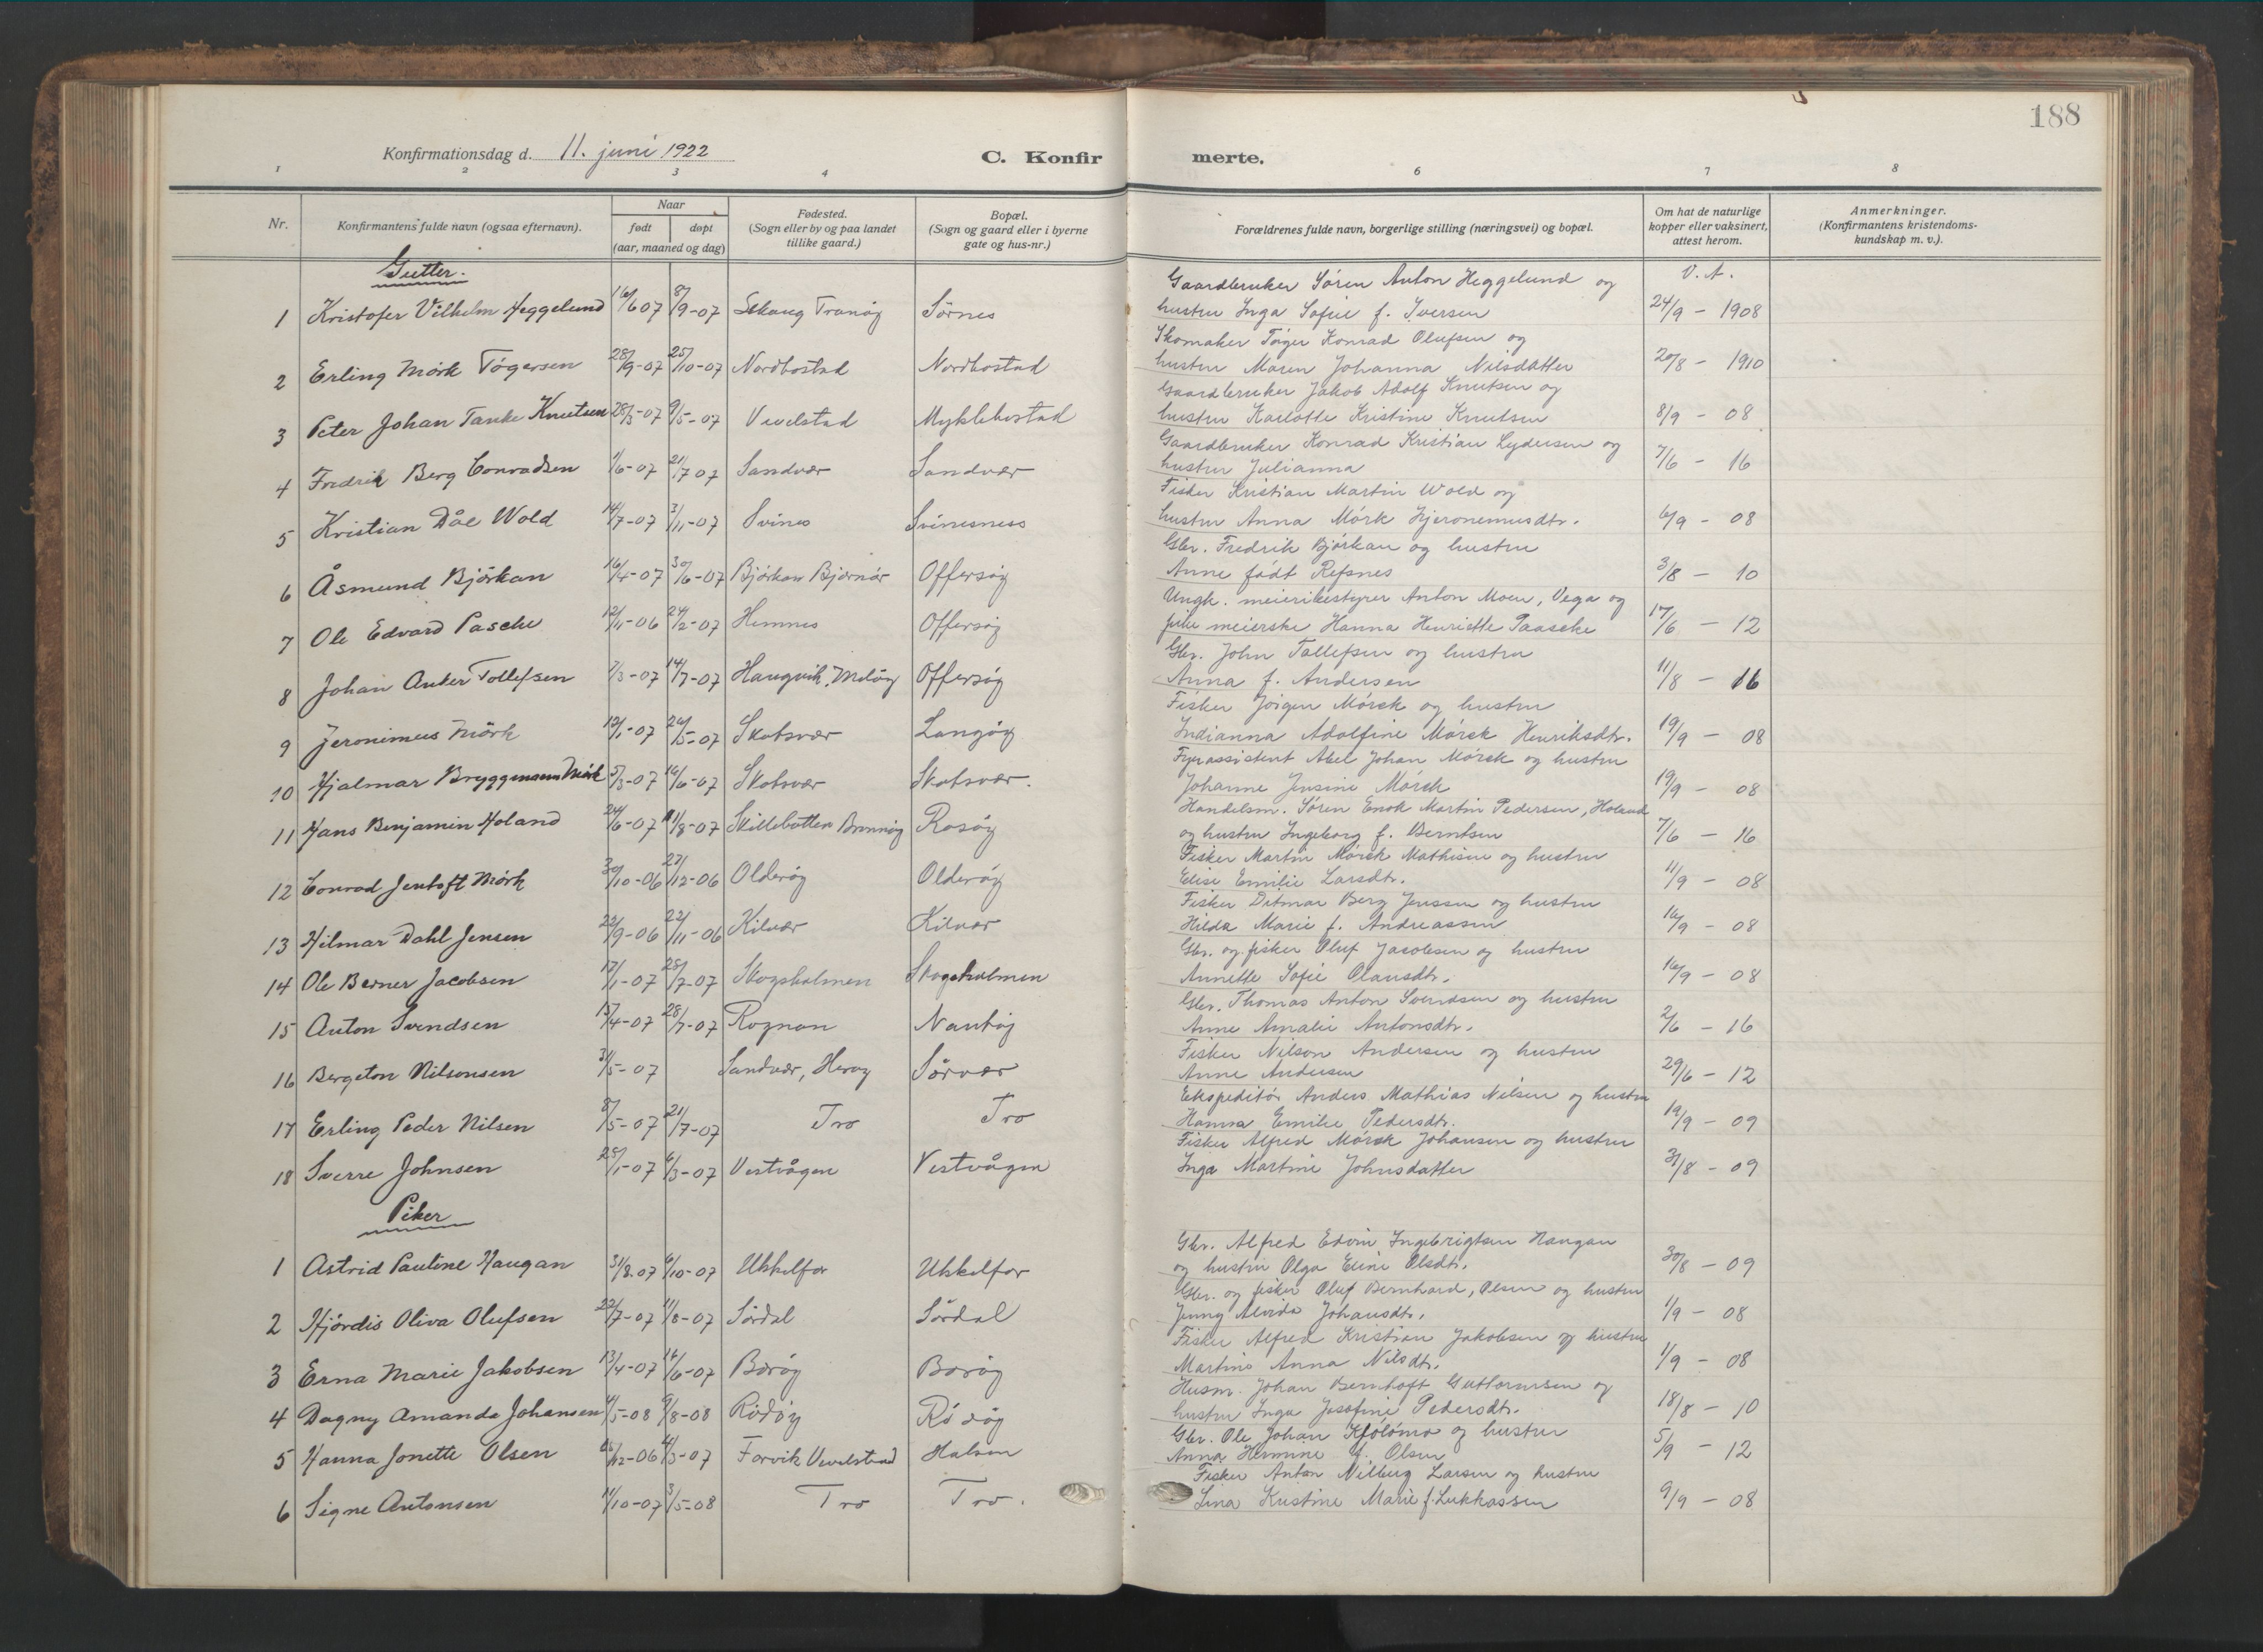 188
Konfirmationsdag d. 11. juni 1922
C. Konfir merte.
1 2 3 4 6 7 8
Nr. Konfirmantens fulde navn (ogsaa efternavn). Naar født døpt (aar, maaned og dag) Fødested. (Sogn eller by og paa landet tillike gaard.) Bopæl. (Sogn og gaard eller i byerne gate og hus-nr.) Forældrenes fulde navn, borgerlige stilling (næringsvei) og bopæl. Om hat de naturlige kopper eller vaksinert, attest herom. Anmerkninger. (Konfirmantens kristendoms-kundskap m. v.).
Gutter. V. A.
Gaardbruker Søren Anton Heggelund og
1 Kristofer Vilhelm Heggelund 16/6 07 8/9-07 Tranøy Sørnes hustru Inga Sofie f. Iversen 24/9 - 1908
Skomaker Tøger Konrad Olufsen og
2 Erling Mørk Tøgersen 28/9-07 25/10-07 Nordbostad Nordbostad hustru Maren Johanna Nilsdatter 20/8 - 1910
Gaardbruker Jakob Adolf Knutsen og
3 Peter Johan Tanke Knutsen 28/3-07 9/5-07 Vevelstad Myklebostad hustru Karlotte Kristine Knutsen 8/9 - 08
Gaardbruker Konrad Kristian Lydersen og
4 Fredrik Berg Conradsen 1/6-07 21/7 07 Sandvær Sandvær hustru Julianna 7/6 - 16
Fisker Kristian Martin Wold og
5 Kristian Dåe Wold 14/7-07 3/11-07 Svines Svinesness hustru Anna Mørk Hjeronemusdtr. 6/9 - 08
Gbr. Fredrik Bjørkan og hustru
6 Åsmund Bjørkan 16/4-07 30/6-07 Bjørkan Bjørnør Offersøy Anne født Refsnes 3/8 - 10
Ungk. meieribestyrer Anton Moen, Vega og
7 Ole Edvard Pasche 12/11-06 24/2-07 Hemnes Offersøy pike meierske Hanna Henriette Paasche 17/6 - 12
Gbr. John Tollefsen og hustru
8 Johan Anker Tollefsen 7/3-07 14/7-07 Haugvik, Meløy Offersøy Anna f. Andersen 11/8 - 16
Fisker Jørgen Mørck og hustru
9 Jeronimus Mørk 12/1-07 26/5-07 Skotsvær Langøy Indianna Adolfine Mørck Henriksdtr. 19/9 - 08
Fyrassistent Abel Johan Mørck og hustru
10 Hjalmar Bryggmann Mørk 5/3-07 16/6-07 Skotsvær Skotsvær. Johanne Jensine Mørch 19/9 - 08
Handelsm. Søren Enok Martin Pedersen, Holand
11 Hans Benjamin Holand 24/6-07 11/8-07 Skillebotten Brønnøy Rosøy og hustru Ingeborg f. Berntsen 7/6 - 16
Fisker Martin Mørck Mathisen og hustru
12 Conrad Jentoft Mørk 30/10-06 27/12-06 Olderøy Olderøy Elise Emilie Larsdtr. 11/9 - 08
Fisker Ditmar Berg Jenssen og hustru
13 Hilmar Dahl Jensen 22/9-06 22/11-06 Kilvær Kilvær Hilda Marie f. Andreassen 16/9 - 08
Gbr. og fisker Oluf Jacobsen og hustru
14 Ole Berner Jacobsen 17/1-07 28/7-07 Skogsholmen Skogsholmen Annette Sofie Olausdtr. 16/9 - 08
Gbr. Thomas Anton Svendsen og hustru
15 Anton Svendsen 15/4-07 28/7-07 Rognan Nautøy Anne Amalie Antonsdtr. 2/6 - 16
Fisker Nilson Andersen og hustru
16 Bergeton Nilsonsen 31/5-07 Sandvær, Herøy Sørvær Anne Andersen 29/6 - 12
Ekspeditør Anders Mathias Nilsen og hustru
17 Erling Peder Nilsen 8/5-07 21/7-07 Tro Tro Hanna Emilie Pedersdtr. 19/9 - 09
Fisker Alfred Mørck Johansen og hustru
18 Sverre Johnsen 25/1-07 6/3-07 Vestvågen Vestvågen Inga Martine Johnsdatter 31/8 - 09
Piker
Gbr. Alfred Edvin Ingebrigtsen Haugan
1 Astrid Pauline Haugan 31/8-07 6/10-07 Ukkelfor Ukkelfor og hustru Olga Eline Olsdtr. 30/8 - 09
Gbr. og fisker Oluf Bernhard, Olsen og hustru
2 Hjørdis Oliva Olufsen 22/7-07 11/8-07 Sørdal Sørdal Jenny Alvida Johansdtr. 1/9 - 08
Fisker Alfred Kristian Jakobsen og hustru
3 Erna Marie Jakobsen 13/4-07 16/6-07 Borøy Borøy Martine Anna Nilsdtr. 1/9 - 08
Husm. Johan Bernhoft Guttormsen og
4 Dagny Amanda Johansen 4/5-08 9/8-08 Rødøy Rødøy hustru Inga Josefine Pedersdtr. 18/8 - 10
Gbr. Ole Johan Kjølømo og hustru
5 Hanna Jonette Olsen /12-06 /3-07 Forvik Vevelstad Halsen Anna Hermine f. Olsen 5/9 - 12
Fisker Anton Nilberg Larsen og hustru
6 Signe Antonsen 11/10-07 3/5-08 Tro Tro. Lina Kristine Marie f. Lukkassen 9/9 - 08